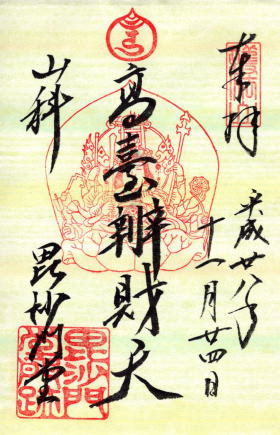 奉拝
平成廿八年
十一月廿四日
高臺辨財天
山科
毘沙門堂
毘沙門
堂門跡